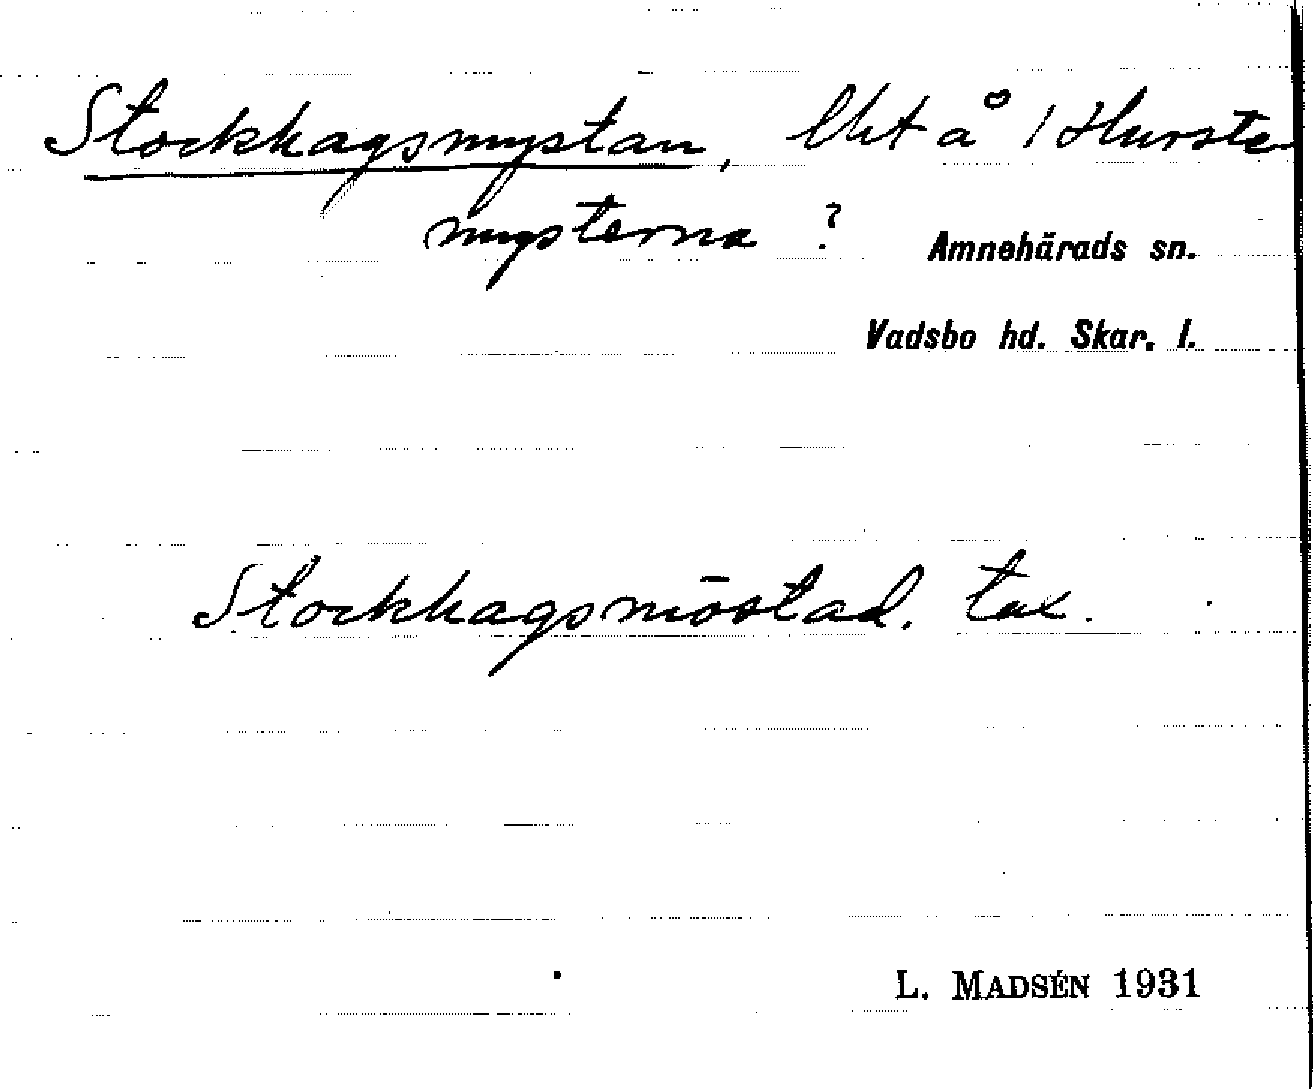 Stockhagsmystan, lht å 1 Hurste
mysterna ?
Amnehärads sn.
Vadsbo hd. Skar. l.
Stockhagsmöstad. tax.
L. MADSÉN 1931